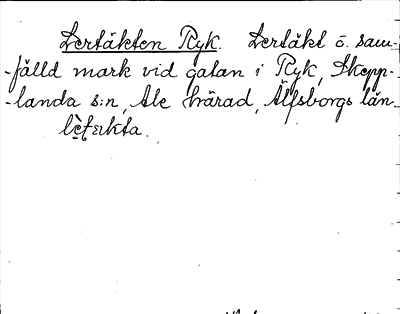 Lertäkten Ryk. Lertäkt ö. sam-
-fälld mark vid gatan i Ryk, Skepp-
-landa s:n, Ale härad, Älfsborgs län.